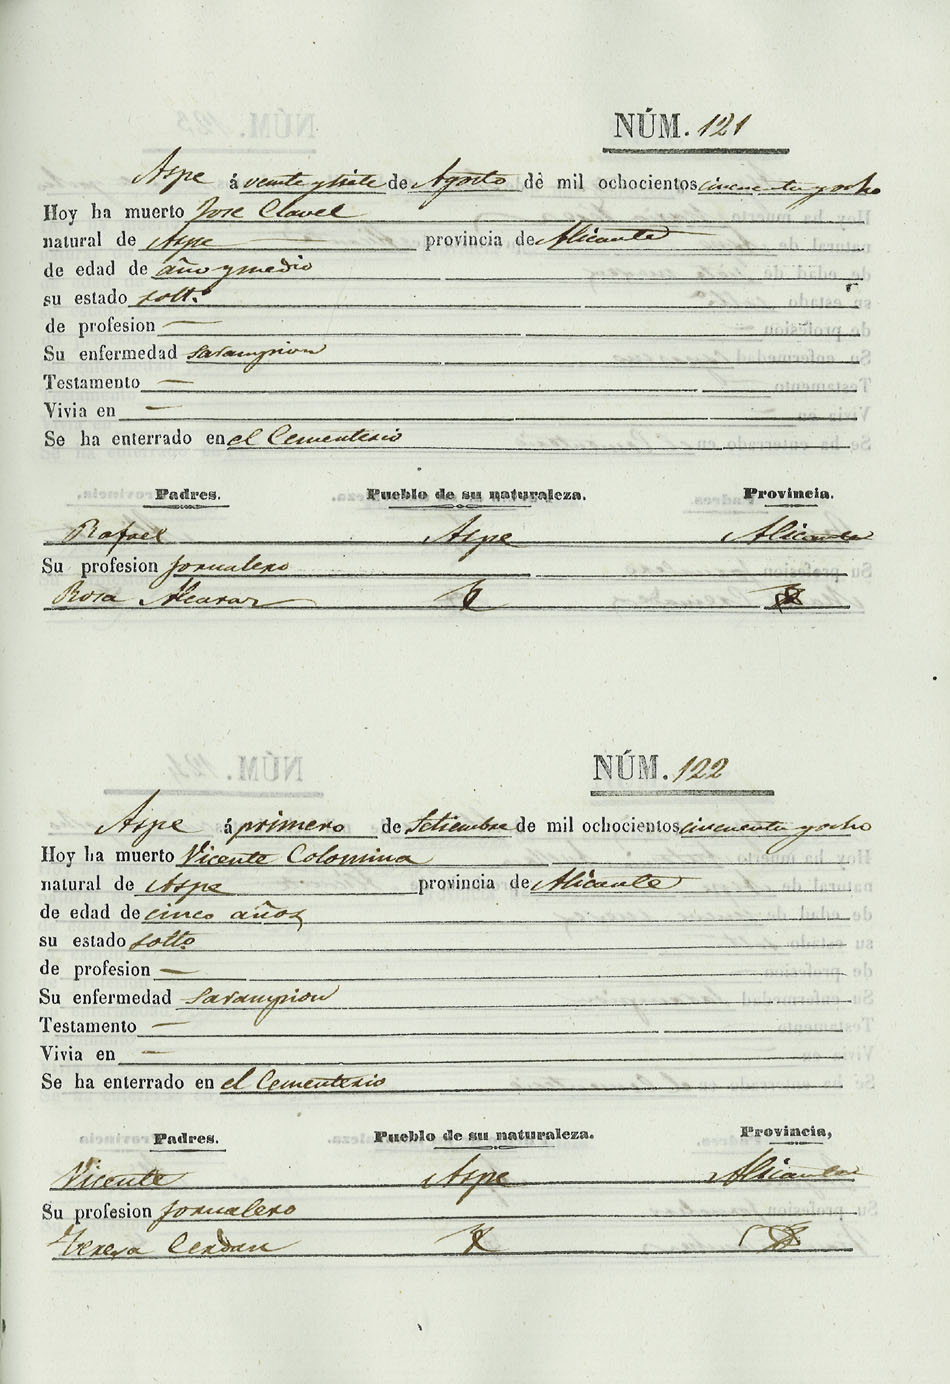 NÚM. 121
Aspe á veinte y siete de Agosto dè mil ochocientos cincuenta y ocho
Hoy ha muerto Jose Clavel
natural de Aspe provincia de Alicante
de edad de año y medio
su estado soltº
de profesion —
Su enfermedad sarampion
Testamento —
Vivia en —
Se ha enterrado en el Cementerio
Padres. Pueblo de su naturaleza. Provincia.
Rafael Aspe Alicante
Su profesion Jornalero
Rosa Alcaraz
NÚM. 122
Aspe á primero de Setiembre de mil ochocientos cincuenta y ocho
Hoy ha muerto Vicente Colomina
natural de Aspe provincia de Alicante
de edad de cinco años
su estado soltº
de profesion —
Su enfermedad sarampion
Testamento —
Vivia en —
Se ha enterrado en el Cementerio
Padres. Pueblo de su naturaleza. Provincia,
Vicente Aspe Alicante
Su profesion Jornalero
Teresa Cerdan